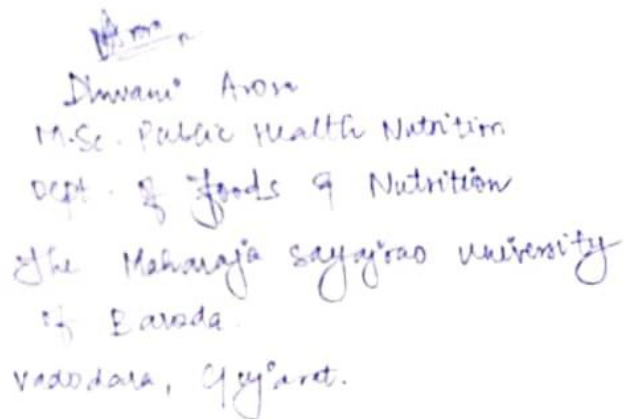 Dhwani Arora
M.Sc. Public Health Nutrition
Dept. of Foods & Nutrition
The Maharaja Sayajirao University
of Baroda.
Vadodara, Gujarat.